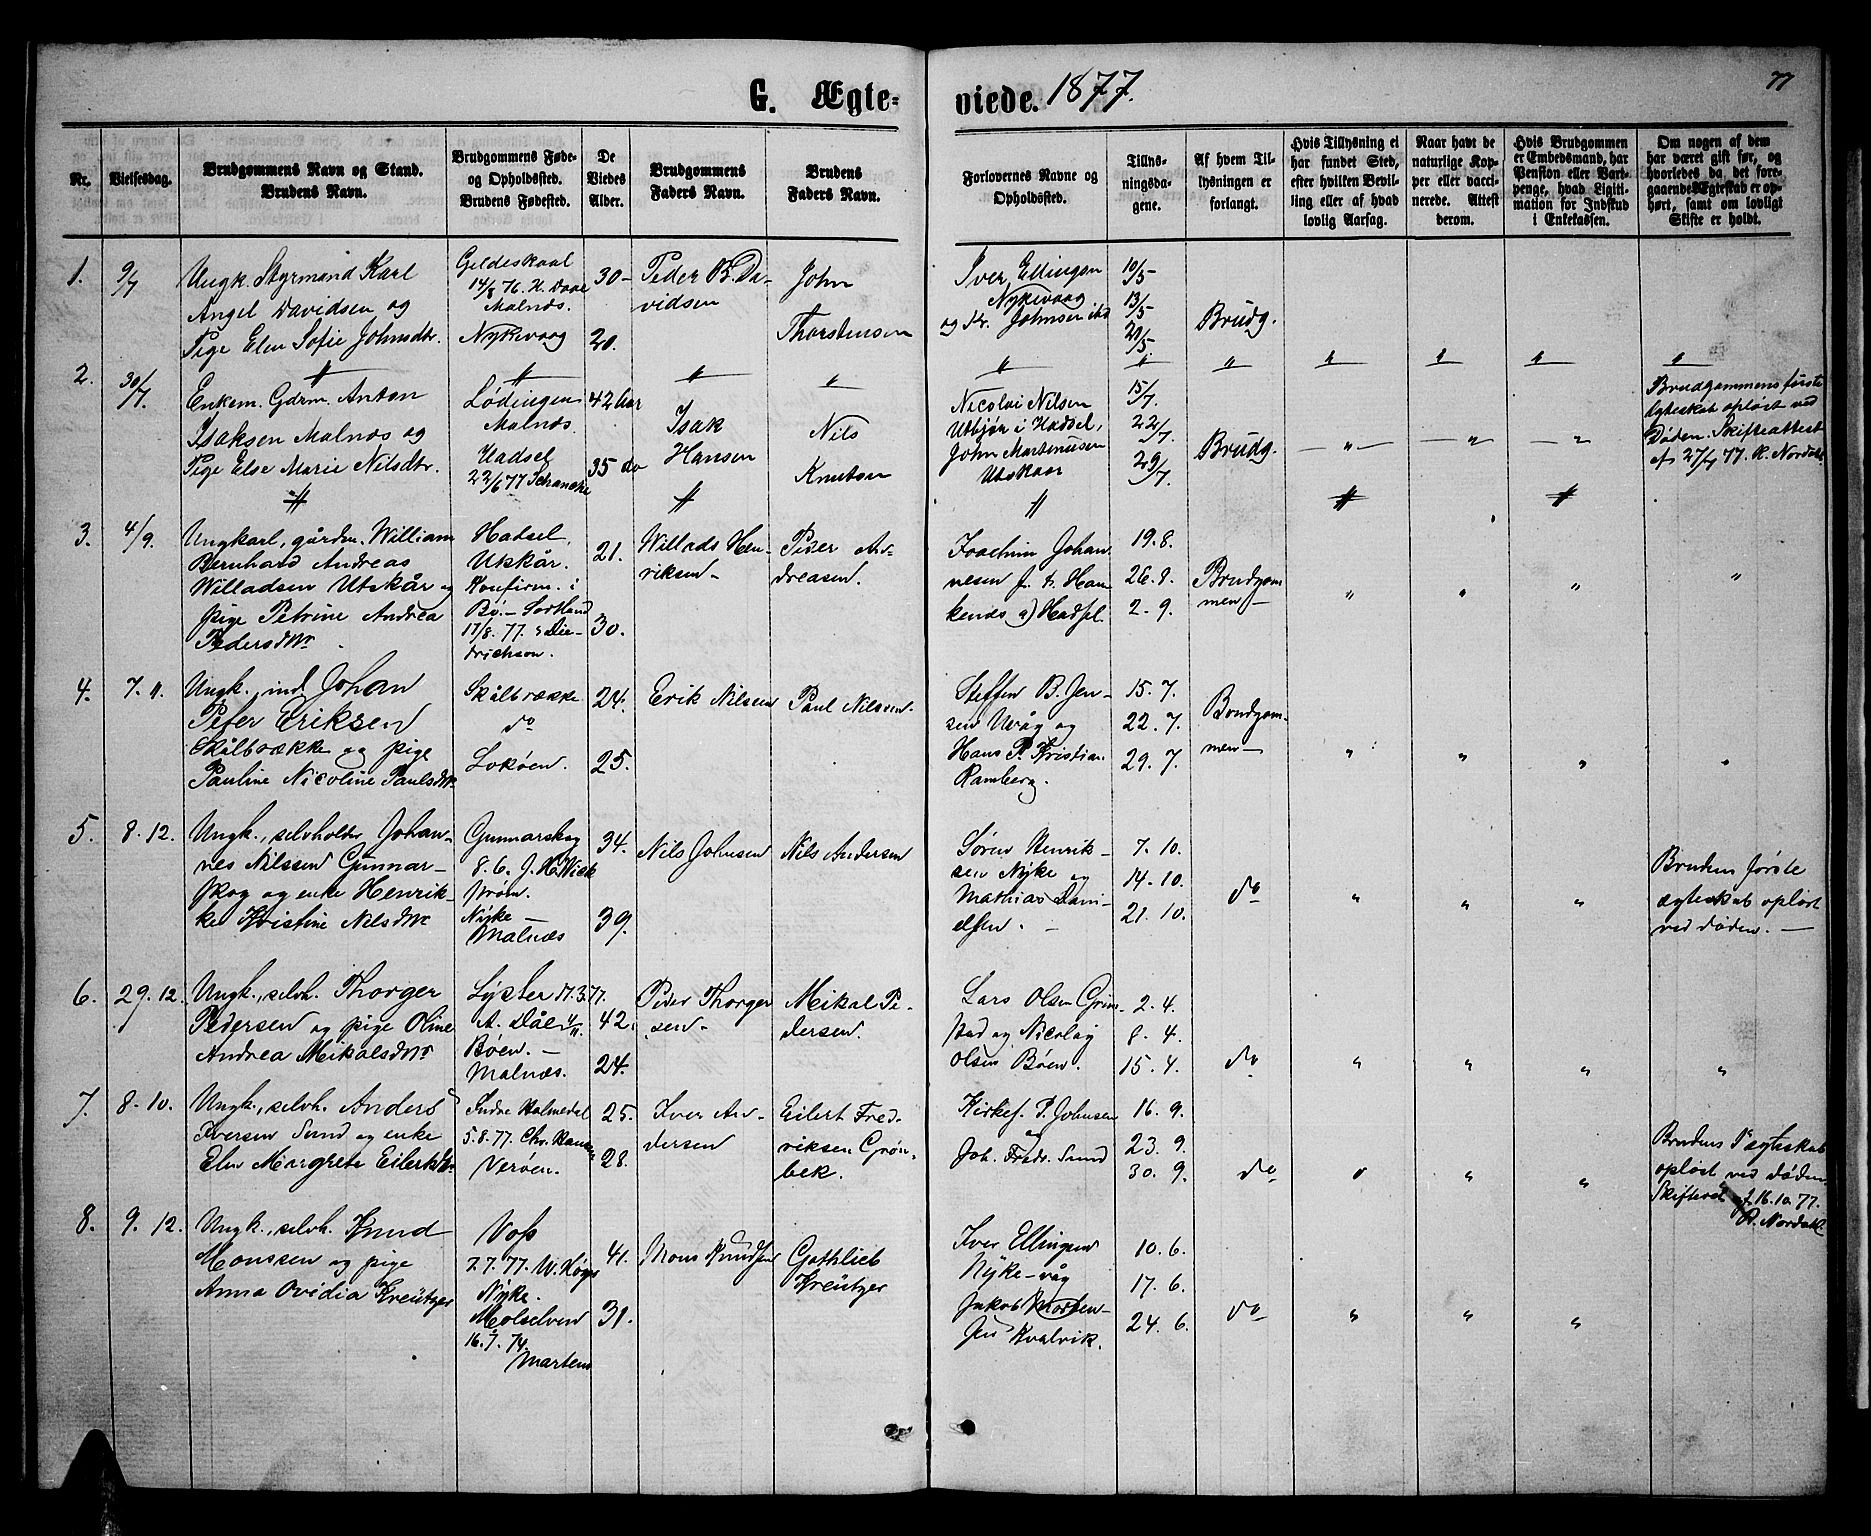 77
G. Ægte- viede. 1877.
Nr.
Vielsesdag.
Brudgommens Navn og Stand.
Brudens Navn.
Brudgommens Føde-
og Opholdssted.
Brudens Fødested.
De
Viedes
Alder.
Brudgommens
Faders Navn.
Brudens
Faders Navn.
Forlovernes Navne og
Opholdssted.
Tillys-
ningsda-
gene.
Af hvem Til-
lysningen er
forlangt.
Hvis Tillysning ei
har fundet Sted,
efter hvilken Bevil-
ling eller af hvad
lovlig Aarsag.
Naar havt de
naturlige Kop-
per eller vacci-
nerede. Attest
derom.
Hvis Brudgommen
er Embedsmand, har
Pension eller Vart-
penge, hvad Ligiti-
mation for Indskud
i Enkekassen.
Om nogen af dem
har været gift før, og
hvorledes da det fore-
gaaende Ægteskab er op-
hørt, samt om lovligt
Skifte er holdt.
1. 9/7
Ungk. Styrmand Karl
Angel Davidsen og
Pige Elen Sofie Johnsdtr.
Gildeskaal
14/8 76. H. Daae
Malnæs.
Nykvaag
30-
20.
Peder B. Da-
vidsen
John
Thorstensen
Iver Ellingsen
Nykvaag
og Fr. Johnsen ibd
10/5-
13/5-
21/5.
Brudg.
2. 30/7.
Enkem. Gdrm. Anton
Isaksen Malnæs og
Pige Else Marie Nilsdtr.
Lødingen
Malnæs
Hadsel
22/6 77 Schancke
42 Aar
35 do
Isak
Hansen
Nils
Knutsen
Nicolai Nilsen
Utbjør i Hadsel,
John Martinusen
Utskaar
15/7.
22/7.
29/7.
Brudg.
Brudgommens første
Egteskab opløst ved
Døden. Skifteattest
af 27/7 77. R. Nordahl
3. 4/9.
Ungkarl, gårdm. William
Bernhard Andreas
Willadsen Utskår og
pige Petrine Andrea
Pedersdtr.
Hadsel,
Utskår.
Konfirm. i
Bø. - Sortland
17/8. 77. Die-
drichson.
21.
30.
Willads Hen-
riksen-
Peder An-
dreasen.
Joachim Johan
nesen f. t. Han
kenes a) Hadsel.
19.8.
26.8.
2. 9.
Brudgom
men-
4. 7. 11.
Ungk. ind. Johan
Peter Eriksen
Skålbrække og pige
Pauline Nicoline Paulsdtr.
Skålbrække
do
Lokøen.
24.
25.
Erik Nilsen
Paul Nilsen.
Steffen B. Jen-
sen Uvåg og
Hans P. Kristian
Ramberg.
15. 7.
22. 7.
29. 7.
Brudgom-
men-
5. 8. 12.
Ungk., selvholder Johan-
nes Nilssen Gunnar-
skog og enke Henrik-
ke Kristine Nilsdtr
Gunnarskog
8. 6. J. H. Wick
strøm.
Nyke -
Malnæs
34.
39.
Nils Johnsen
Nils Andersen
Søren Henrik-
sen Nyke og
Mathias Dani-
elsen.
7. 10.
14. 10.
21. 10.
do
Brudens første
ægteskab opløst
ved døden.
6. 29. 12.
Ungk., selvh. Thorger
Pedersen og pige Oline
Andrea Mikalsdtr
Lyster 17.3.77.
A. Dåe
Bøen. -
Malnæs.
42.
24.
Peder Thorger
sen-
Mikal Pe-
dersen.
Lars Olsen Grim-
stad og Nicolay
Olsen Bøen.
2. 4.
8. 4.
15. 4.
do
7. 8. 10.
Ungk., selvh. Anders
Iversen Sund og enke
Elen Margrete Eilertsdtr
Indre Holmedal
5.8.77. Chr. Hansen
Verøen.
25.
28.
Iver An-
dersen
Eilert Fred-
riksen Grøn-
bek.
Kirkes. P. Johnsen
og
Joh. Fredr. Sund
16. 9.
23. 9.
30. 9.
do
Brudens 1ste ægteskab
opløst ved døden
af 16.10.77.
R. Nordahl
8. 9. 12.
Ungk., selvh. Knud
Monssen og pige
Anna Ovidia Kreutzer
Voss
2.7.77. W. Høgs
Nyke.
Målselven
16. 7. 74.
Martens
41.
31.
Mons Knudsen
Gothlieb
Kreutzer
Iver Ellingsen
Nyke-våg
Jakob Morten-
sen Kvalvik.
10. 6.
17. 6.
24. 6.
do